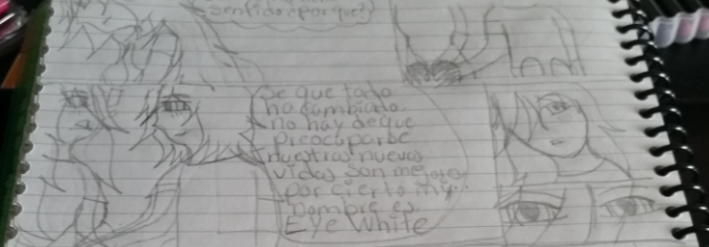 sentido ¿por que?)
Se que todo
ha cambiado
no hay de que
preocuparse
nuestras nuevas
vidas son mejores
por cierto my
nombre es
Eye White